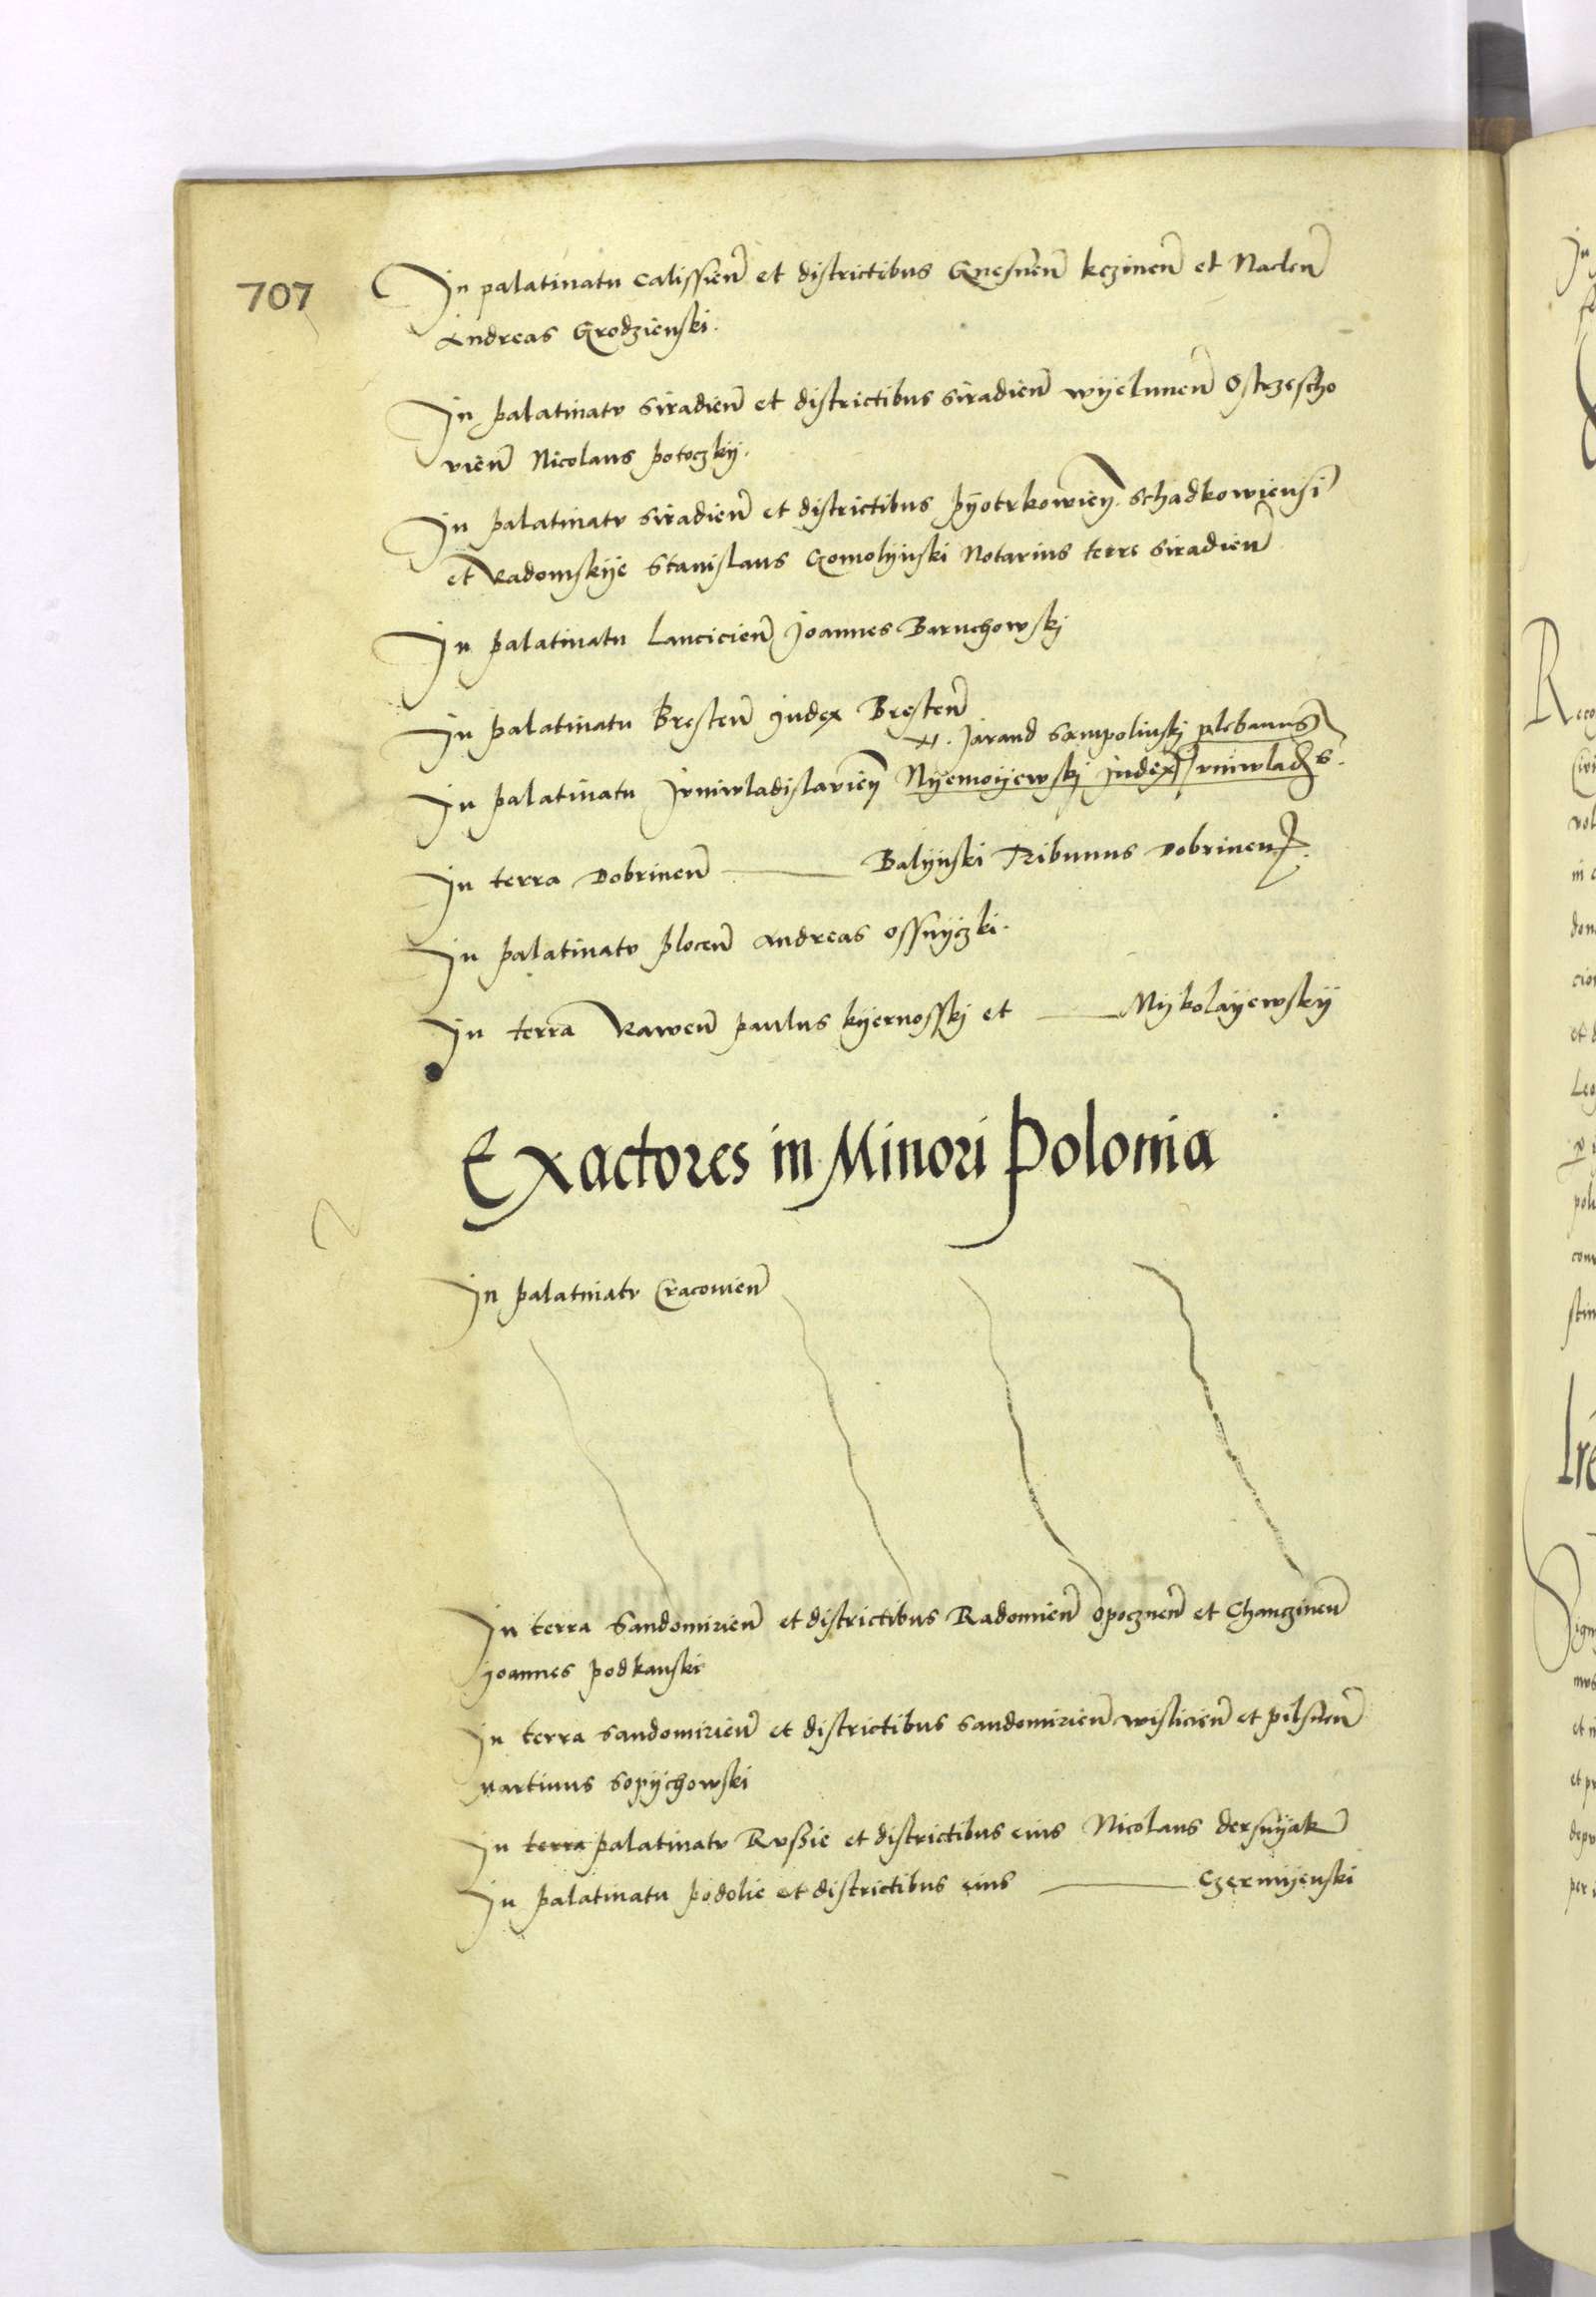 707
In palatinatu Calissien et districtibus Gnesnen kczinen et Naclen
Andreas Grodzienski.
In palatinatv Siradien et districtibus Siradien wÿelunen Ostrzescho
vien Nicolaus potoczkÿ.
In palatinatv Siradien et districtibus pÿotrkowien. Schadkowiensi
et Radomskÿe Stanislaus Gomolÿnski Notarius terre Siradien
In palatinatu Lancicien Joannes Baruchowskj
In palatinatu Bresten Judex Bresten
Jarand Sampolinskj plebanus
In palatinatu Jvniwladislavien Nÿemoÿewskj Judex Jvniwladis.
In terra Dobrinen Balÿnski Tribunus Dobrinen
In palatinatv plocen Andreas Ossnÿczki.
In terra Rawen paulus kÿernosskj et Mÿkolaÿewskÿ
Exactores in Minori Polonia
In palatinatv Cracouien
In terra Sandomirien et districtibus Radomien Opocznen et Chanczinen
Joannes podkanski
In terra Sandomirien et districtibus Sandomirien wislicien et pilsnen
Martinus Sopÿchowski
In terra palatinatv Rvssie et districtibus eius Nicolaus dersnÿak
In palatinatu podolie et districtibus eius Czermÿenski